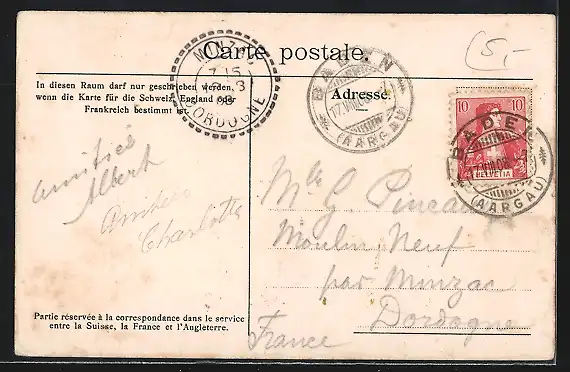 Carte postale.
5,-
In diesen Raum darf nur geschrieben werden,
wenn die Karte für die Schweiz, England oder
Frankreich bestimmt ist.
Adresse.
MINZAC
7 15
8
DORDOGNE
BADEN
(AARGAU)
10 10
HELVETIA
BADEN
(AARGAU)
amitiés
Albert
Amitiés
Charlotte
Mlle G. Pineau
Moulin Neuf
par Minzac
Dordogne
France
Partie réservée à la correspondance dans le service
entre la Suisse, la France et l'Angleterre.